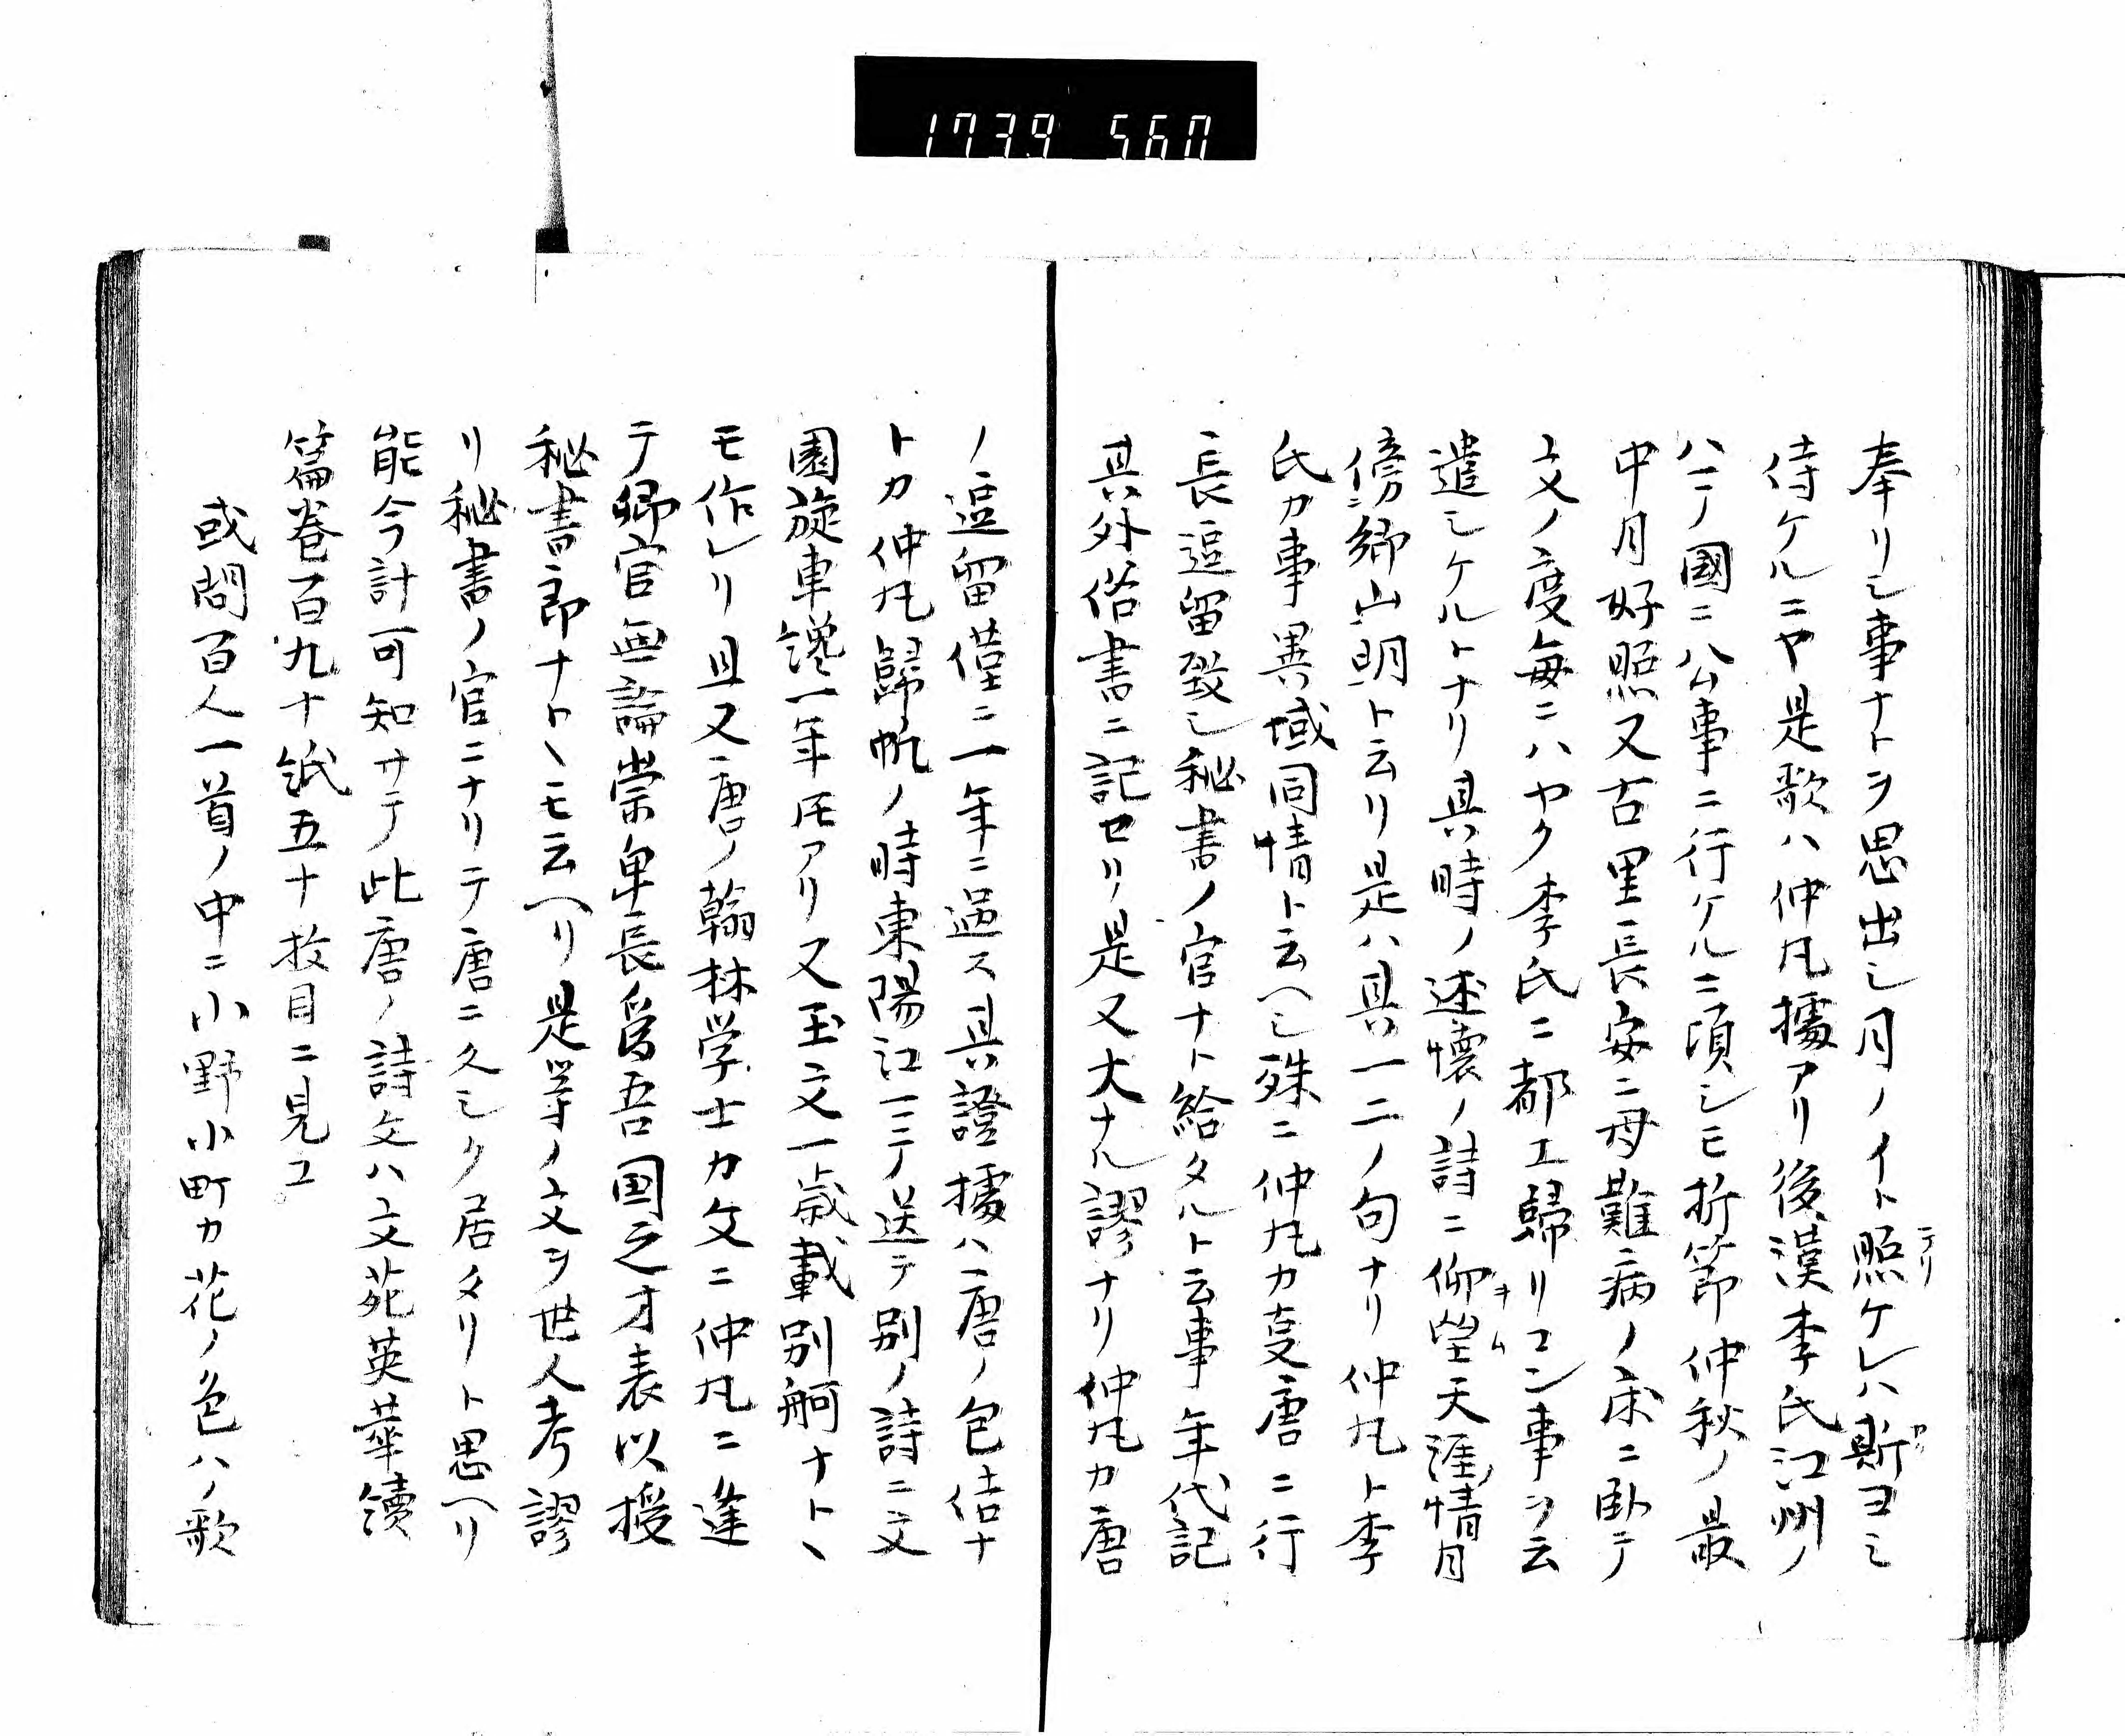 1739 560
奉リシ事ナトヲ思出シ月ノイト照ケレハ斯ヨミ
侍ケルニヤ是歌ハ仲凡據アリ後漢李氏江州ノ
ハテノ國ニ公事ニ行ケルニ頃シモ折節仲秋ノ最
中月好照又古里長安ニ母難病ノ床ニ臥テ
文ノ度毎ニハヤク李氏ニ都エ歸リコン事ヲ云
遣シケルトナリ其時ノ述懷ノ詩ニ仰望天涯情月
傍郷山明ト云リ是ハ其一二ノ句ナリ仲凡ト李
氏カ事異域同情ト云ヘシ殊ニ仲凡カ支唐ニ行
長逗留致シ秘書ノ官ナト給タルト云事年代記
其外俗書ニ記セリ是又大ナル謬ナリ仲凡カ唐
ノ逗留僅ニ一年ニ過ス其證據ハ唐ノ包佶ナ
トカ仲凡歸帆ノ時東陽江ニテ送テ別ノ詩ニ文
園旋車纔一年トモアリ又玉文一歳載別舸ナト丶
モ作レリ且又唐ノ翰林学士カ文ニ仲凡ニ逢
テ卿官無論崇卑長為吾国之才表以授
秘書郎ナト丶モ云ヘリ是等ノ文ヲ世人考謬
リ秘書ノ官ニナリテ唐ニ久シク居タリト思ヘリ
能今計可知サテ此唐ノ詩文ハ文苑英華續
篇巻百九十紙五十枚目ニ見ユ
或問百人一首ノ中ニ小野小町カ花ノ色ハノ歌